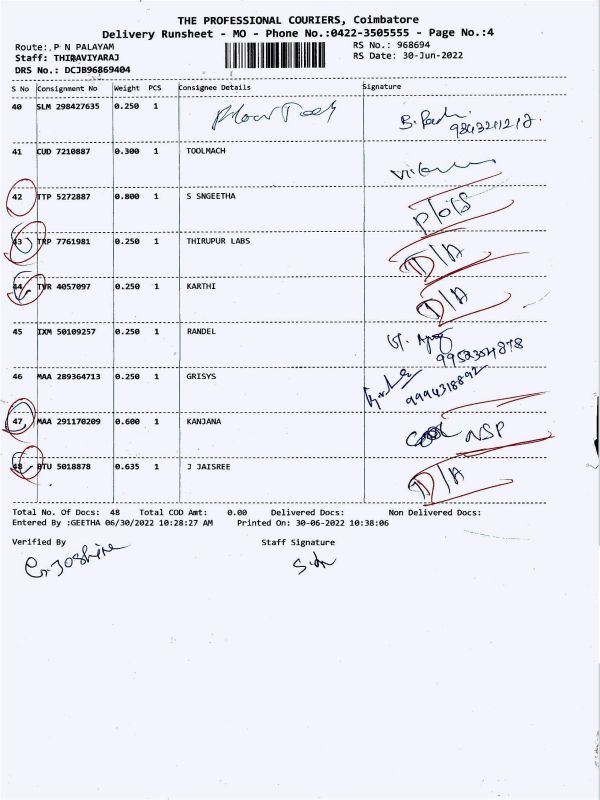 THE PROFESSIONAL COURIERS, Coimbatore
Delivery Runsheet - MO - Phone No.:0422-3505555 - Page No.:4
Route: P N PALAYAM RS No.: 968694
Staff: THIRAVIYARAJ RS Date: 30-Jun-2022
DRS No.: DCJB96869404
S No Consignment No Weight PCS Consignee Details Signature
40 SLM 298427635 0.250 1
41 CUD 7210887 0.300 1 TOOLMACH
42 TTP 5272887 0.800 1 S SNGEETHA
43 TRP 7761981 0.250 1 THIRUPUR LABS D/A
44 TVR 4057097 0.250 1 KARTHI D/A
45 IXM 50109257 0.250 1 RANDEL
46 MAA 289364713 0.250 1 GRISYS 9994318892
47 MAA 291170209 0.600 1 KANJANA NSP
48 BTU 5018878 0.635 1 J JAISREE D/A
Total No. Of Docs: 48 Total COD Amt: 0.00 Delivered Docs: Non Delivered Docs:
Entered By :GEETHA 06/30/2022 10:28:27 AM Printed On: 30-06-2022 10:38:06
Verified By Staff Signature